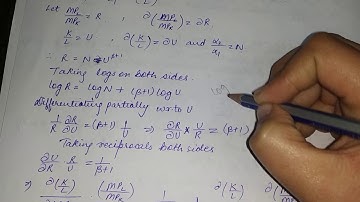 Let MPL/MPK = R , ∂(MPL/MPK) = ∂R
K/L = U , ∂(K/L) = ∂U and α2/α1 = N
∴ R = N * U^β+1
Taking logs on both sides.
log R = log N + (β+1) log U log
differentiating partially w.r.to U
1/R ∂R/∂U = (β+1) 1/U ⇒ ∂R/∂U × U/R = (β+1)
Taking reciprocals both sides
∂U/∂R R/U = 1/β+1
⇒ ∂(K/L)